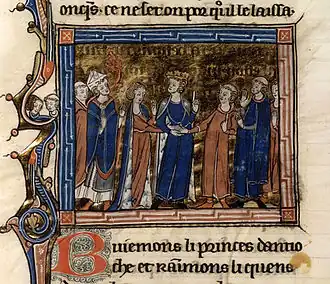 onq̃s. ce ne seron por q̃ il se laissa.
Buiemons li princes dantio
che et Raimons li quens